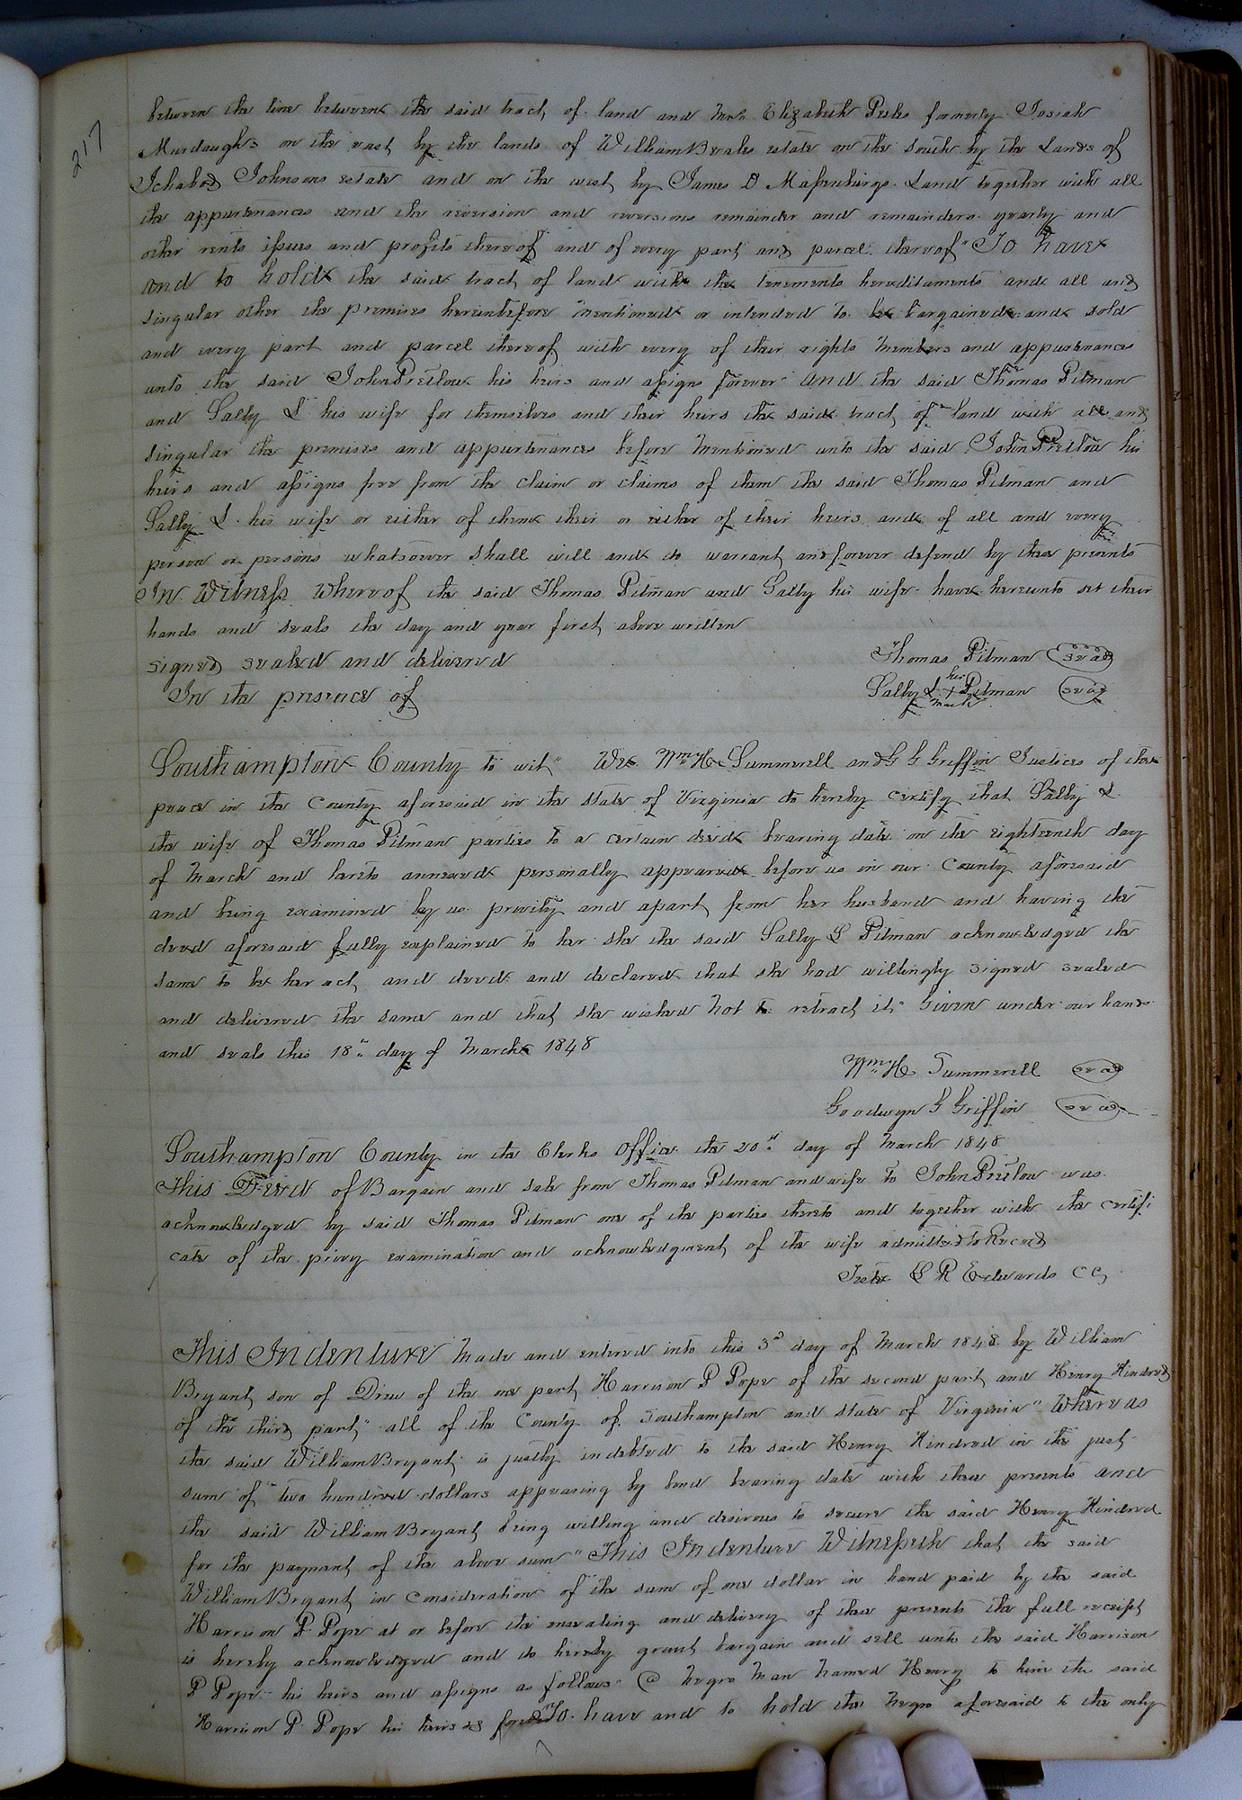 217
between the line between the said tract of land and Mrs Elizabeth Peebs formerly Josiah
Murdaughs on the east by the lands of William Beales estate on the South by the Lands of
Ichabod Johnsons estate and on the west by James D Massenburgs Land together with all
the appurtenances and the reversion and reversions remainder and remainders yearly and
other rents issues and profits thereof and of every part and parcel thereof" To have
and to hold the said tract of land with the tenements hereditaments and all and
singular other the premises hereinbefore mentioned or intended to be bargained and sold
and every part and parcel thereof with every of their rights members and appurtenances
unto the said John Pretlow his heirs and assigns forever" And the said Thomas Pitman
and Sally L his wife for themselves and their heirs the said tract of land with all and
singular the premises and appurtenances before mentioned unto the said John Pretlow his
heirs and assigns free from the claim or claims of them the said Thomas Pitman and
Sally L. his wife or either of them their or either of their heirs and of all and every
person or persons whatsoever shall will and do warrant and forever defend by these presents
In Witness Whereof the said Thomas Pitman and Sally his wife have hereunto set their
hands and seals the day and year first above written
signed sealed and delivered Thomas Pitman (seal)
In the presence of Sally L + Pitman (seal)
her
mark
Southampton County to wit" We Wm H Summerell and G G Griffin Justices of the
peace in the County aforesaid in the State of Virginia do hereby certify that Sally L.
the wife of Thomas Pitman parties to a certain deed bearing date on the eighteenth day
of March and hereto annexed personally appeared before us in our County aforesaid
and being examined by us privity and apart from her husband and having the
deed aforesaid fully explained to her she the said Sally L Pitman acknowledged the
same to be her act and deed and declared that she had willingly signed sealed
and delivered the same and that she wished not to retract it" Given under our hands
and seals this 18" day of March 1848
Wm H Summerell (seal)
Goodwyn G Griffin (seal)
Southampton County in the Clerks Office the 20th day of March 1848
This Deed of Bargain and sale from Thomas Pitman and wife to John Pretlow was
acknowledged by said Thomas Pitman one of the parties thereto and together with the certifi
cate of the privy examination and acknowledgment of the wife admitted to Record
Teste L R Edwards CC
This Indenture Made and entered into this 3d day of March 1848 by William
Bryant son of Drew of the one part Harrison P Pope of the second part and Henry Kindred
of the third part" all of the County of Southampton and State of Virginia" Whereas
the said William Bryant is justly indebted to the said Henry Kindred in the just
sum of two hundred dollars appearing by bond bearing date with these presents and
the said William Bryant being willing and desirous to secure the said Henry Kindred
for the payment of the above sum" This Indenture Witnesseth that the said
William Bryant in consideration of the sum of one dollar in hand paid by the said
Harrison P Pope at or before the ensealing and delivery of these presents the full receipt
is hereby acknowledged and do hereby grant bargain and sell unto the said Harrison
P Pope his heirs and assigns as follows" @ Negro Man Named Henry to him the said
Harrison P Pope his heirs &c forever To have and to hold the Negro aforesaid to the only